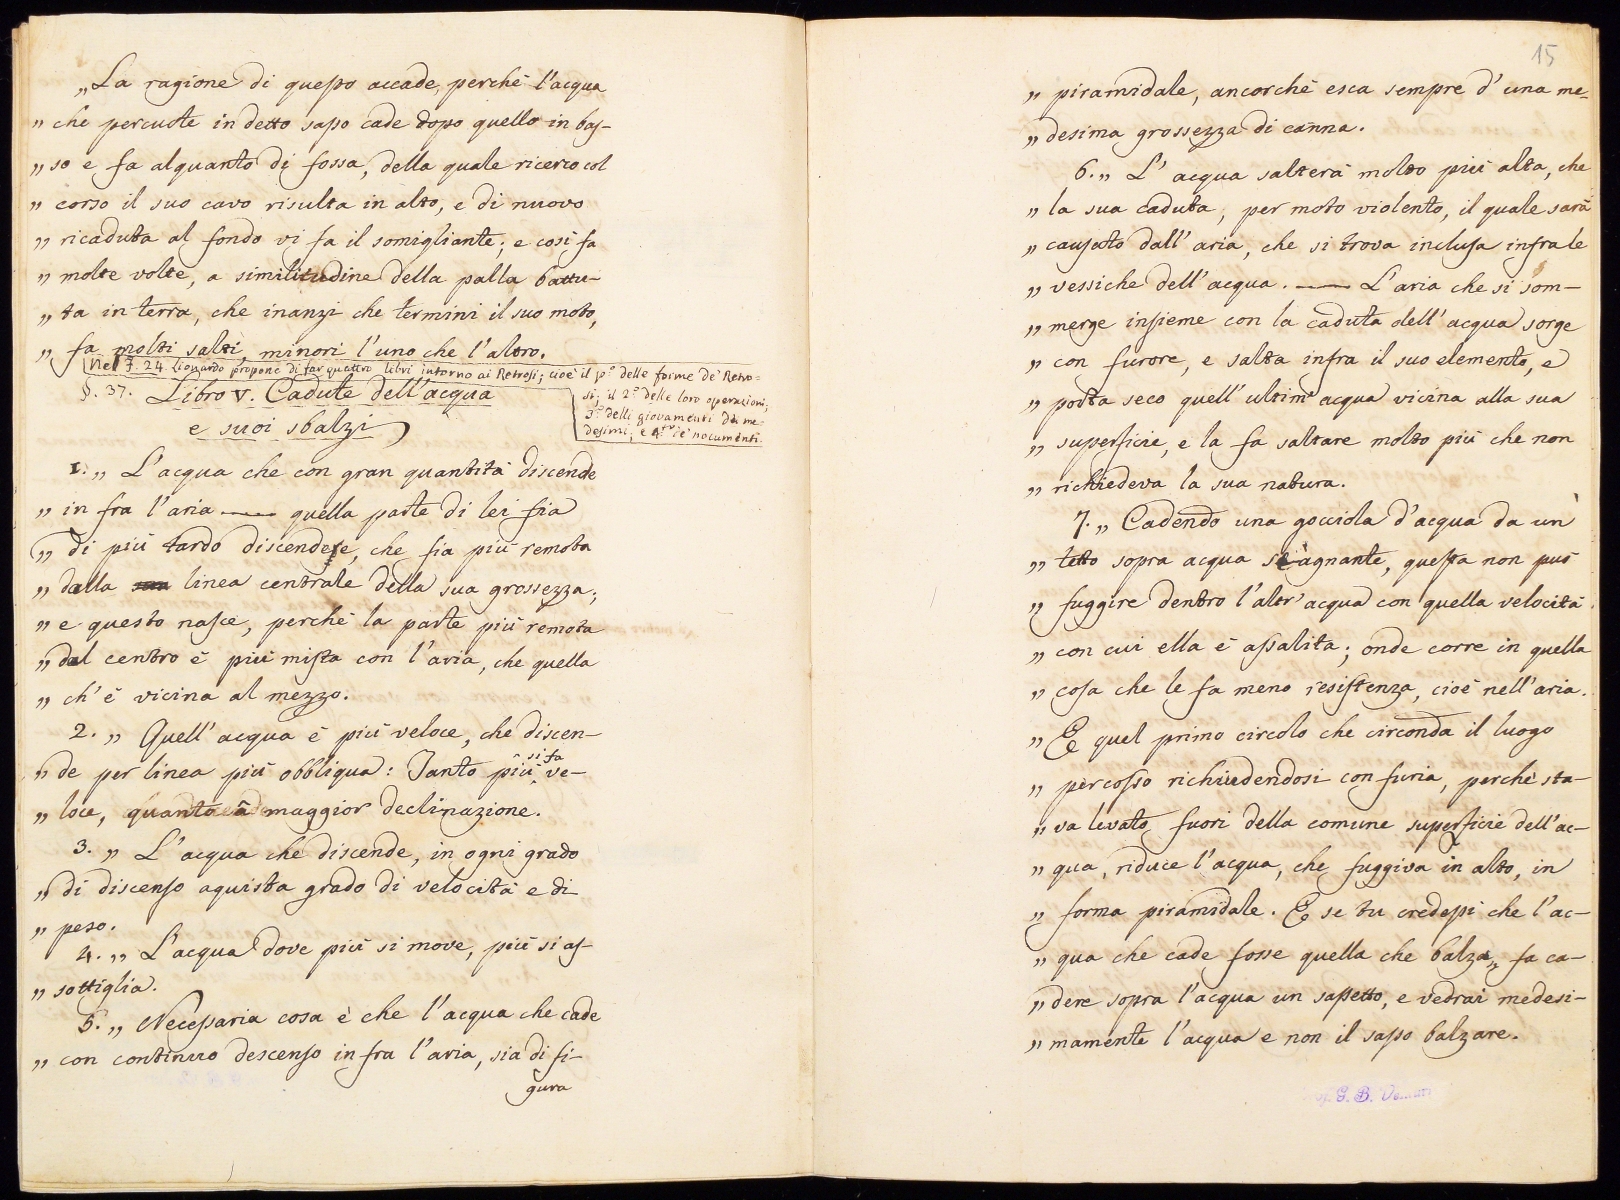 „La ragione di questo accade, perchè l'acqua
„ che percuote in detto sasso cade dopo quello in bas-
„ so e fa alquanto di fossa, della quale ricerco col
„ corso il suo cavo risulta in alto, e di nuovo
„ ricaduta al fondo vi fa il somigliante; e così fa
„ molte volte, a similitudine della palla battu-
„ ta in terra, che inanzi che termini il suo moto,
„ fa molti salti, minori l'uno che l'altro.
Nel F. 24 Lionardo propone di far quattro libri intorno ai Retrosi; cioè il p.º delle forme de' Retro=
si; il 2.º delle loro operazioni;
3.º delli giovamenti de me-
desimi; e 4.º de' nocumenti.
§. 37. Libro V. Cadute dell'acqua
e suoi sbalzi
1. „ L'acqua che con gran quantità discende
„ in fra l'aria —— quella parte di lei fia
„ di più tardo discendere, che fia più remota
„ dalla linea centrale della sua grossezza;
„ e questo nasce, perchè la parte più remota
„ dal centro è più mista con l'aria, che quella
„ ch' è vicina al mezzo.
2. „ Quell' acqua è più veloce, che discen-
„ de per linea più obbliqua: Tanto più si fa ve-
„ loce, quanto à maggior declinazione.
3. „ L'acqua che discende, in ogni grado
„ di discenso aquista grado di velocità e di
„ peso.
4. „ L'acqua dove più si move, più si as-
„ sottiglia.
5. „ Necessaria cosa è che l'acqua che cade
„ con continuo descenso in fra l'aria, sia di fi-
gura
15
„ piramidale, ancorchè esca sempre d' una me=
„ desima grossezza di canna.
6. „ L' acqua salterà molto più alta, che
„ la sua caduta, per moto violento, il quale sarà
„ causato dall' aria, che si trova inclusa infra le
„ vessiche dell' acqua. —— L'aria che si som-
„ merge insieme con la caduta dell' acqua sorge
„ con furore, e salta infra il suo elemento, e
„ porta seco quell' ultim' acqua vicina alla sua
„ superficie, e la fa saltare molto più che non
„ richiedeva la sua natura.
7. „ Cadendo una gocciola d'acqua da un
„ tetto sopra acqua stagnante, questa non può
„ fuggire dentro l'altr' acqua con quella velocità
„ con cui ella è assalita; onde corre in quella
„ cosa che le fa meno resistenza, cioè nell'aria.
„ E quel primo circolo che circonda il luogo
„ percosso richiudendosi con furia, perchè sta-
„ va levato fuori della comune superficie dell'ac-
„ qua, riduce l'acqua, che fuggiva in alto, in
„ forma piramidale. E se tu credessi che l'ac-
„ qua che cade fosse quella che balza, fa ca-
„ dere sopra l'acqua un sassetto, e vedrai medesi-
„ mamente l'acqua e non il sasso balzare.
G. B.